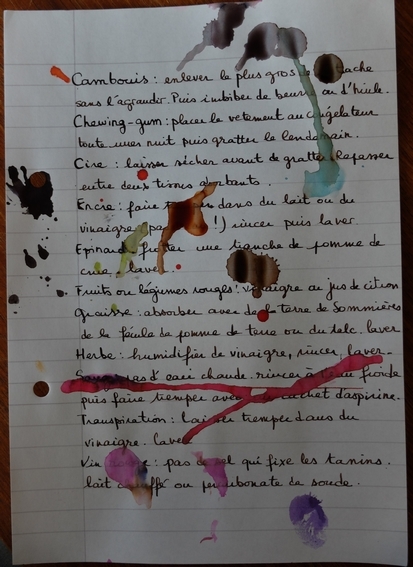 Cambouis : enlever le plus gros de la tache
sans l'agrandir. Puis imbiber de beurre ou d'huile.
Chewing-gum : placer le vetement au congelateur
toute une nuit puis gratter le lendemain.
Cire : laisser sécher avant de gratter. Repasser
entre deux tissus absorbants.
Encre : faire dans du lait ou du
vinaigre !) rincer puis laver
Epinard frotter une tranche de pomme de
crue, laver
Fruits ou légumes rouges : vinaigre au jus de citron
Graisse : absorber avec de la terre de Sommières
de la fécule de pomme de terre ou du talc. laver
Herbe : humidifier de vinaigre, rincer, laver
d'eau chaude. rincer à l'eau froide
puis faire tremper avec un cachet d'aspirine.
Transpiration : laisser tremper dans du
vinaigre. laver
Vin : pas de sel qui fixe les tanins.
lait ou percarbonate de soude.